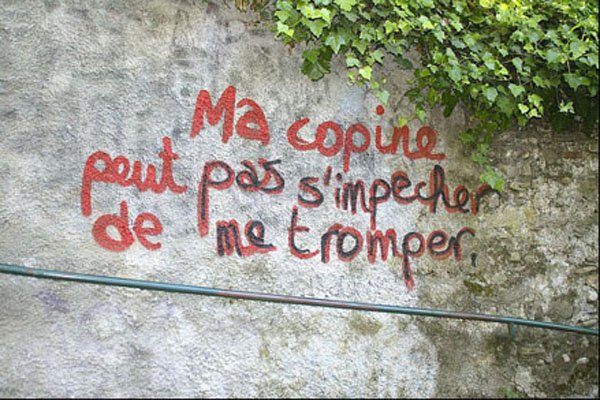 Ma copine
peut pas s'impecher
de me tromper.